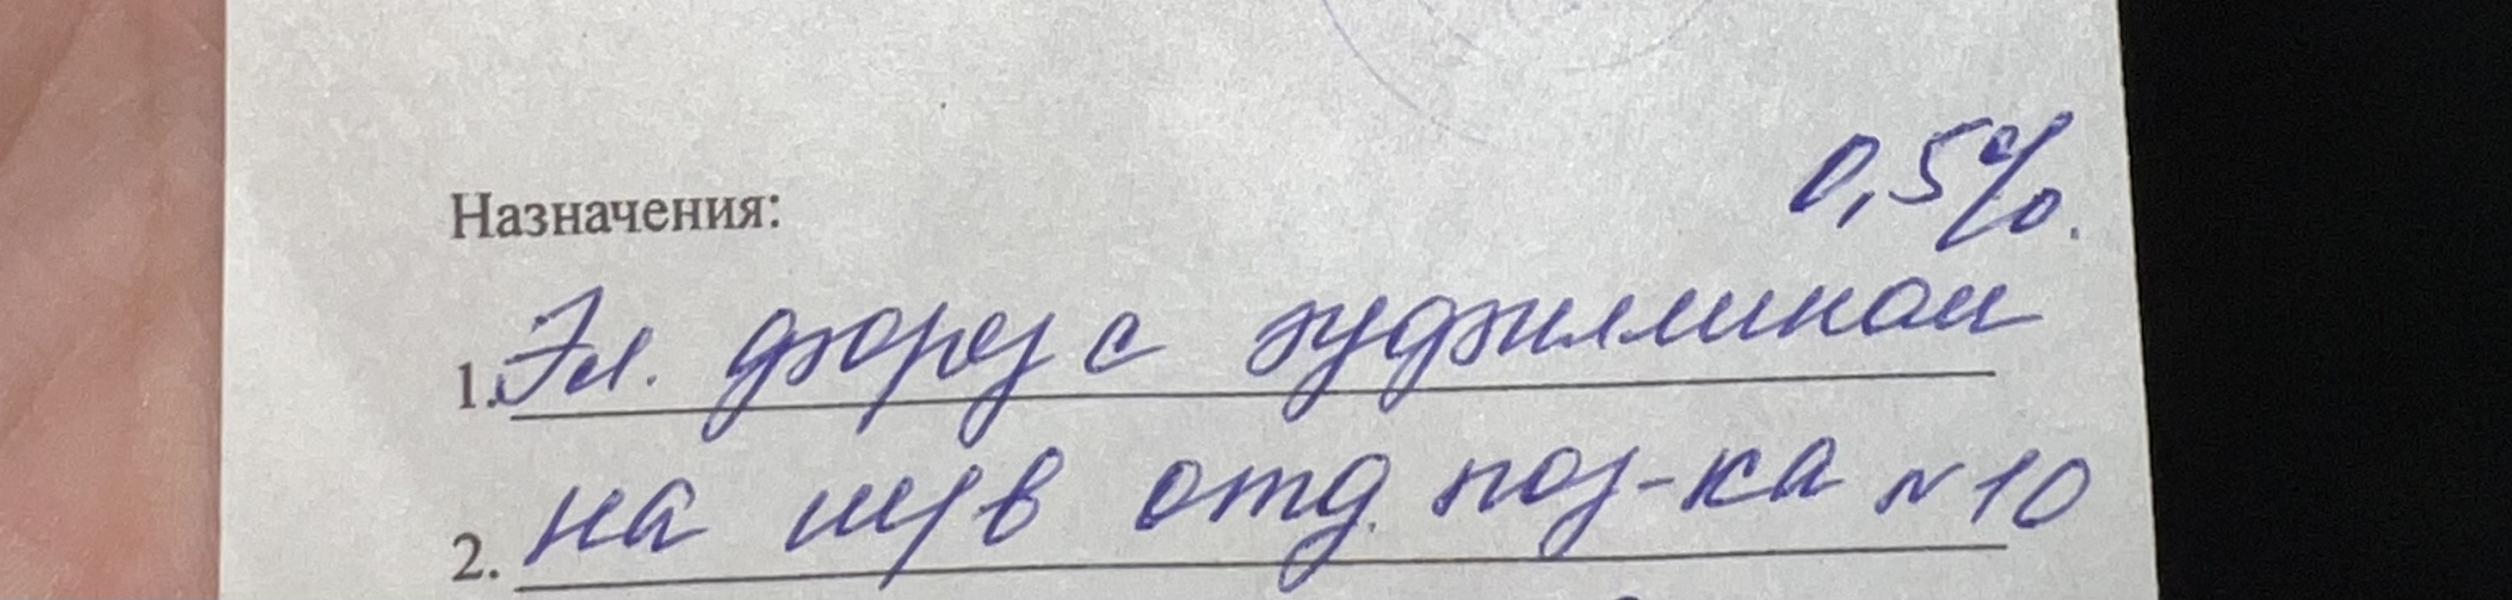 Назначения:
0,5%.
1. Эл. форез с эуфиллином
2. на ш/в отд. поз-ка №10